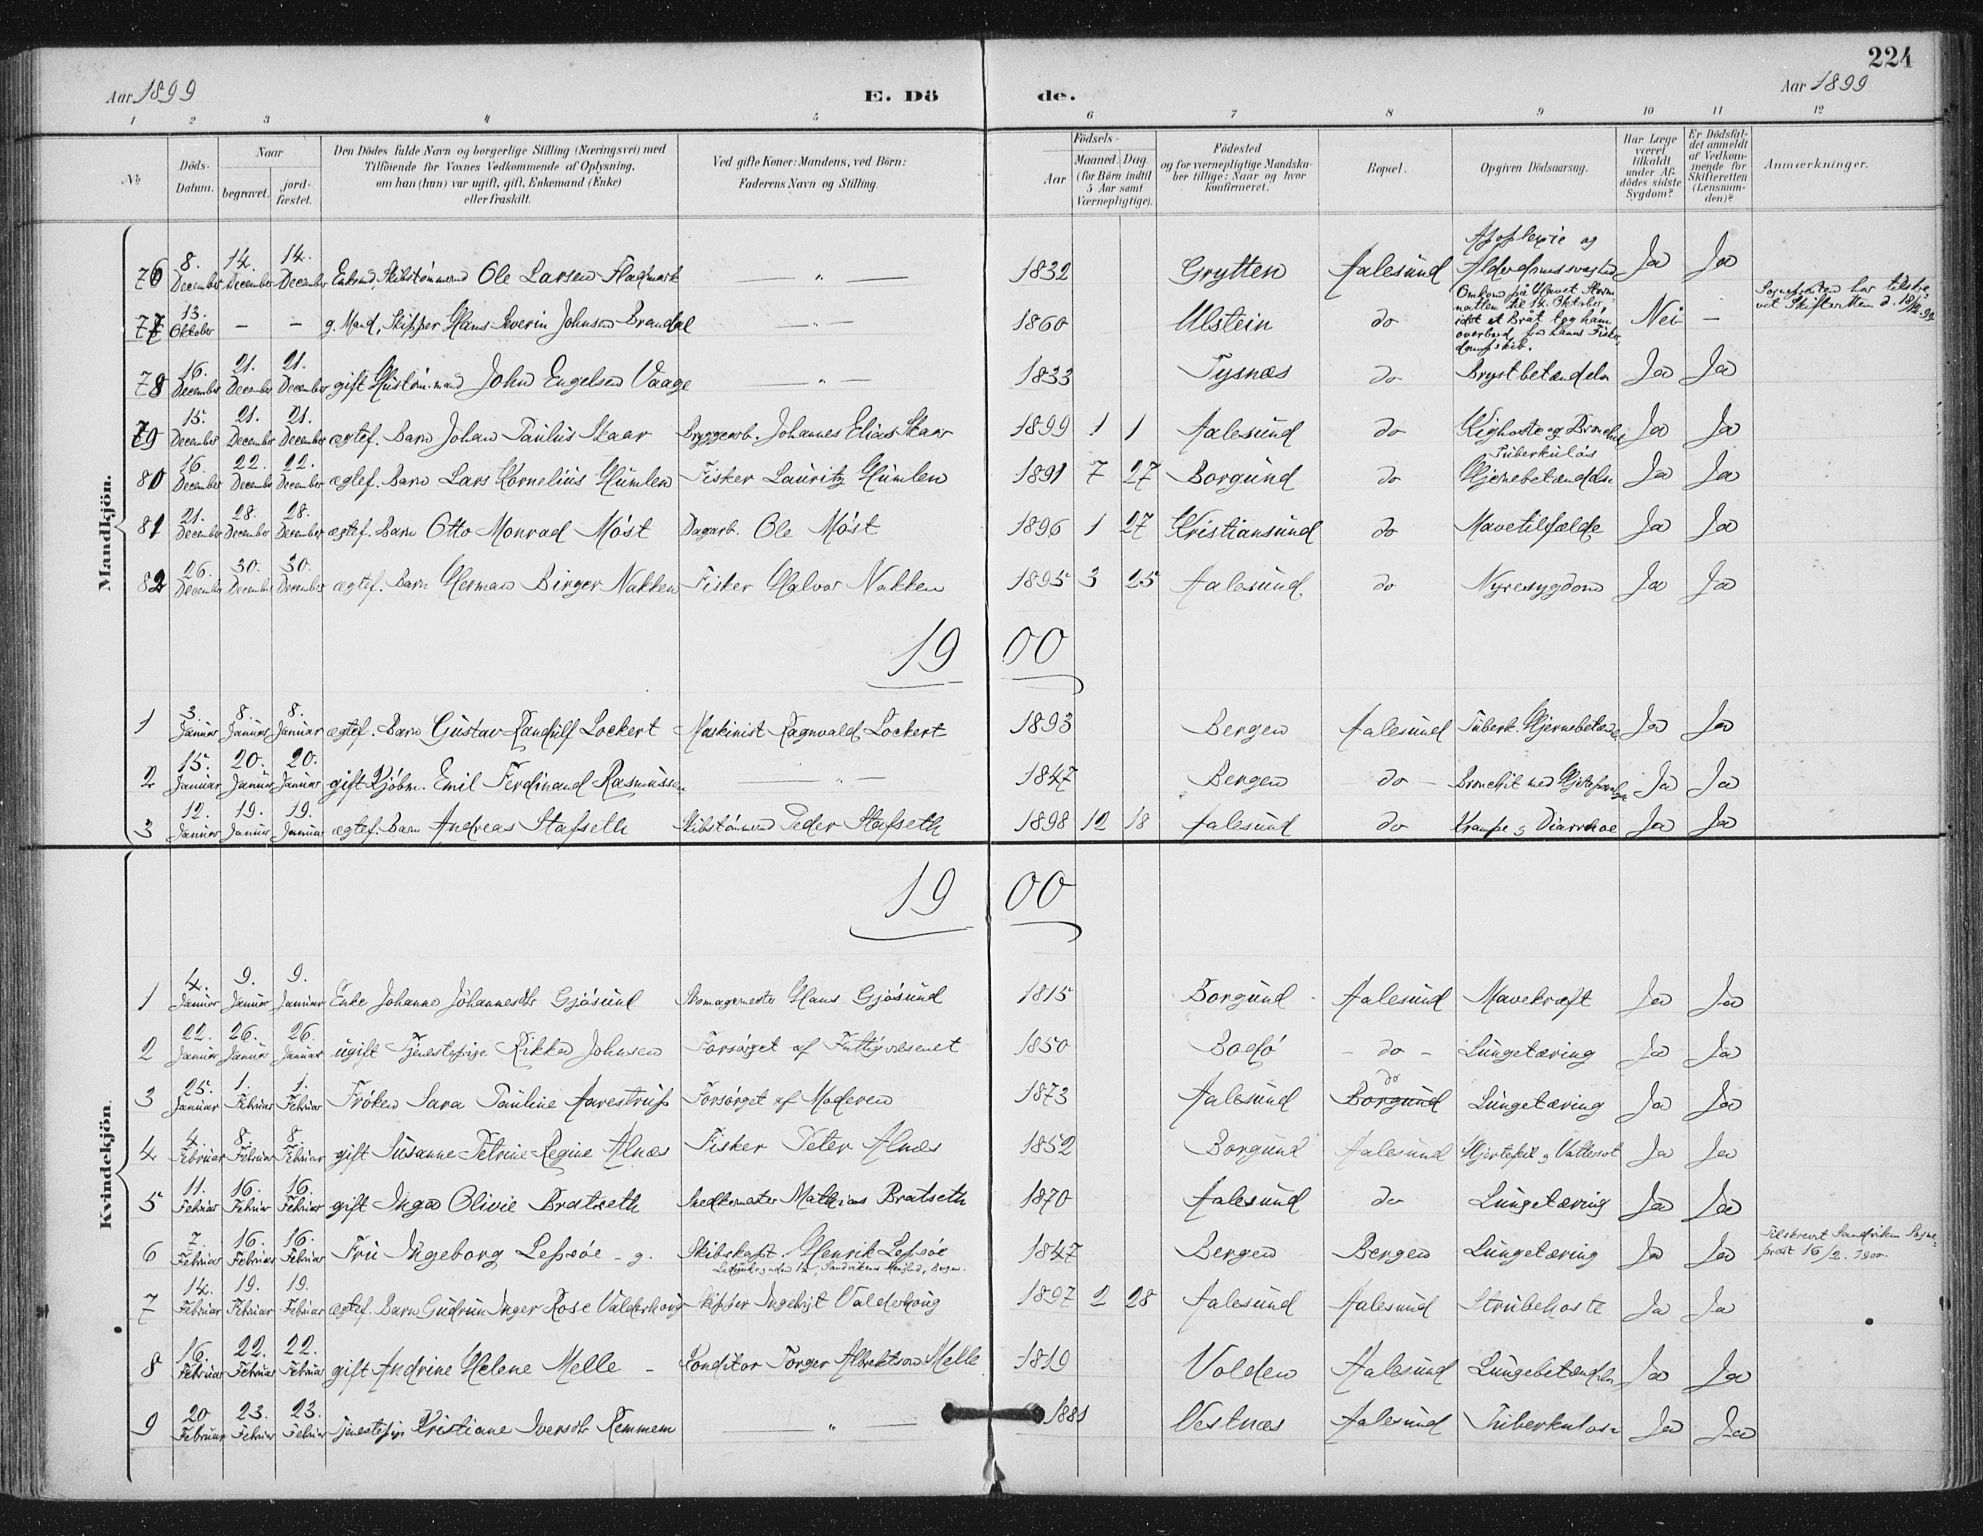 224
Aar 1899 E. Dö de. Aar 1899
1 2 3 4 5 6 7 8 9 10 11 12
№
Döds-Datum.
Naar
begravet. jord-fæstet.
Den Dödes fulde Navn og borgerlige Stilling (Næringsvei) med
Tilföiende for Voxnes Vedkommende af Oplysning,
om han (hun) var ugift, gift, Enkemand (Enke)
eller fraskilt.
Ved gifte Koner: Mandens, ved Börn:
Faderens Navn og Stilling.
Födsels-
Aar
Maaned. Dag.
(for Börn indtil
5 Aar samt
Værnepligtige).
Födested
og for værnepligtige Mandska-
ber tillige: Naar og hvor
konfirmeret.
Bopæl.
Opgiven Dödsaarsag.
Har Læge
været
tilkaldt
under Af-
dödes sidste
Sygdom?
Er Dödsfal-
det anmeldt
af Vedkom-
mende for
Skifteretten
(Lensman-
den)?
Anmærkninger.
Mandkjön.
76 8. December 14. December 14. December Enkmd, Skibstömmermd Ole Larsen Fladmark — " — 1832 Grytten Aalesund Apoplexie og Alderdomssvaghed Ja Ja
77 13. Oktober — — g. Mand, Skipper Hans Severin Johnsen Brandal — " — 1860 Ulstein do Omkom på Havet Storm-
natten til 14. Oktober,
idet et Bråt tog ham
overbord fra hans Fisker-
dampskib. Nei — Sognepresten har tilskre-
vet Skifteretten d. 18/12 99
78 16. December 21. December 21. December gift Hustöm.mand John Engelsen Vaage — " — 1833 Tysnæs do Brystbetændelse Ja Ja
79 15. December 21. December 21. December ægtef. Barn Johan Paulus Skaar Bryggearb. Johannes Elias Skaar 1899 1 1 Aalesund do Kighoste og Bronchit Ja Ja
80 16. December 22. December 22. December ægtef. Barn Lars Kornelius Humlen Fisker Lauritz Humlen 1891 7 27 Borgund do Tuberkuløs Hjernebetændelse Ja Ja
81 21. December 28. December 28. December ægtef. Barn Otto Monrad Möst Dagarb. Ole Möst 1896 1 27 Kristiansund do Mavetilfælde Ja Ja
82 26. December 30. December 30. December ægtef. Barn Herman Birger Nakken Fisker Halvor Nakken 1895 3 25 Aalesund do Nyresygdom Ja Ja
1900
1 3. Januar 8. Januar 8. Januar ægtef. Barn Gustav Randulf Lockert Maskinist Ragnvald Lockert 1893 Bergen Aalesund Tuberk. Hjernebetænd. Ja Ja
2 15. Januar 20. Januar 20. Januar gift Kjöbm. Emil Ferdinand Rasmussen — " — 1847 Bergen do — Bronchit med Ja Ja
3 12. Januar 19. Januar 19. Januar ægtef. Barn Andreas Stafseth Skibstömmermd Peder Stafseth 1898 12 18 Aalesund do Krampe g Diarrhoe Ja Ja
Kvindekjön.
1900
1 4. Januar 9. Januar 9. Januar Enke Johanne Johannesdtr Gjösund Skomagermester Hans Gjösund 1815 Borgund Aalesund Mavekræft Ja Ja
2 22. Januar 26. Januar 26. Januar ugift Tjenestepige Rikka Johnsen Forsörget af Fattigvæsenet 1850 Bodö — do — Lungetæring Ja Ja
3 25. Januar 1. Februar 1. Februar Fröken Sara Pauline Aarestrup Forsörget af Moderen 1873 Aalesund do Borgund Lungetæring Ja Ja
4 4. Februar 8. Februar 8. Februar gift Susanne Petrine Regine Alnæs Fisker Peter Alnæs 1852 Borgund Aalesund Hjertefeil g Vattersot Ja Ja
5 11. Februar 16. Februar 16. Februar gift Inga Olivie Bratseth Snedkermester Mathias Bratseth 1870 Aalesund do Lungetæring Ja Ja
6 7. Februar 16. Februar 16. Februar Fru Ingeborg Lessöe — g. Skibskapt. Henrik Lessöe
12, Sandvikens Bergen. 1847 Bergen Bergen Lungetæring Ja Ja Tilskrevet Sandviken Sogne-
prest 16/2. 1900.
7 14. Februar 19. Februar 19. Februar ægtef. Barn Gudrun Inger Rose Valderhoug Skipper Ingebrigt Valderhoug 1897 2 28 Aalesund Aalesund Strubehoste Ja Ja
8 16. Februar 22. Februar 22. Februar gift Andrine Helene Melle — Konditor Torger Albrektsen Melle 1819 Volden Aalesund Lungebetændelse Ja Ja
9 20 Februar 23. Februar 23. Februar Tjenestepige Kristiane Iversdtr Remmem — " — 1881 Vestnæs Aalesund Tuberkulose Ja Ja